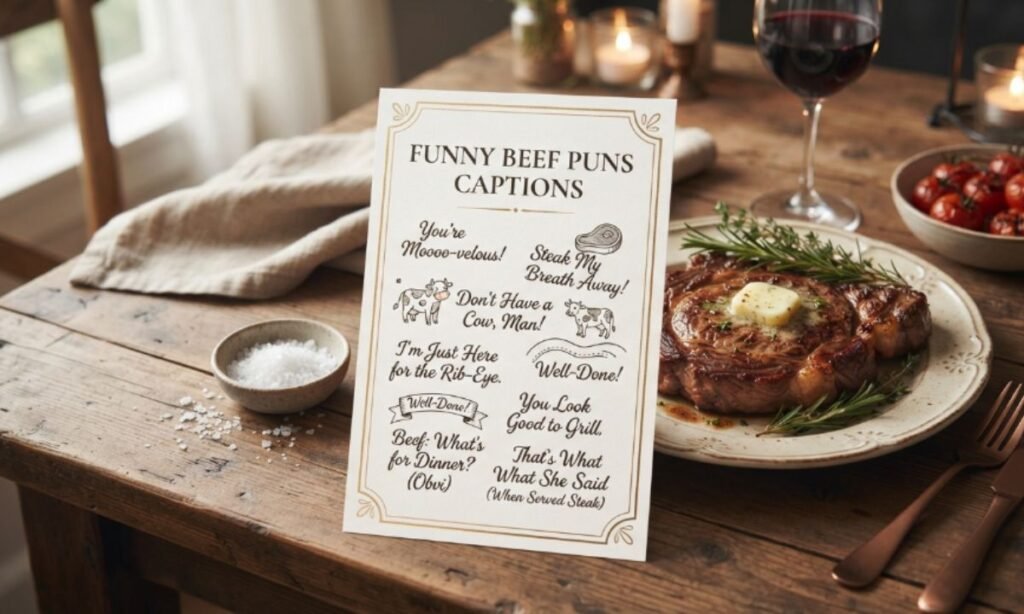 FUNNY BEEF PUNS
CAPTIONS
You're
Moooo-velous!
Steak My
Breath Away!
Don't Have a
Cow, Man!
I'm Just Here
for the Rib-Eye.
Well-Done!
Well-Done!
You Look
Good to Grill.
Beef: What's
for Dinner?
(Obvi)
That's What
What She Said
(When Served Steak)